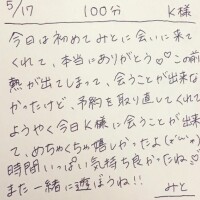 5/17 100分 K様
今日は初めてみとに会いに来て
くれて、本当にありがとう♡♡この前
熱が出てしまって、会うことが出来な
かったけど、予約を取り直してくれて
ようやく今日K様に会うことが出来
て、めちゃくちゃ嬉しかったよ(*˘︶˘*)
時間いっぱい気持ち良かったね♡
また一緒に遊ぼうね!!
みと